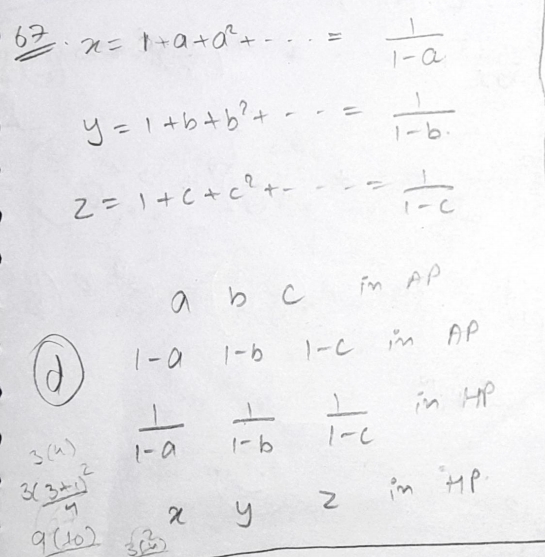 67. x = 1+a+a²+ - - - - = 1/(1-a)
y = 1+b+b²+ - - - = 1/(1-b).
z = 1+c+c²+- - - - = 1/(1-c)
a b c in AP
(d) 1-a 1-b 1-c in AP
1/(1-a) 1/(1-b) 1/(1-c) in HP
x y z in HP